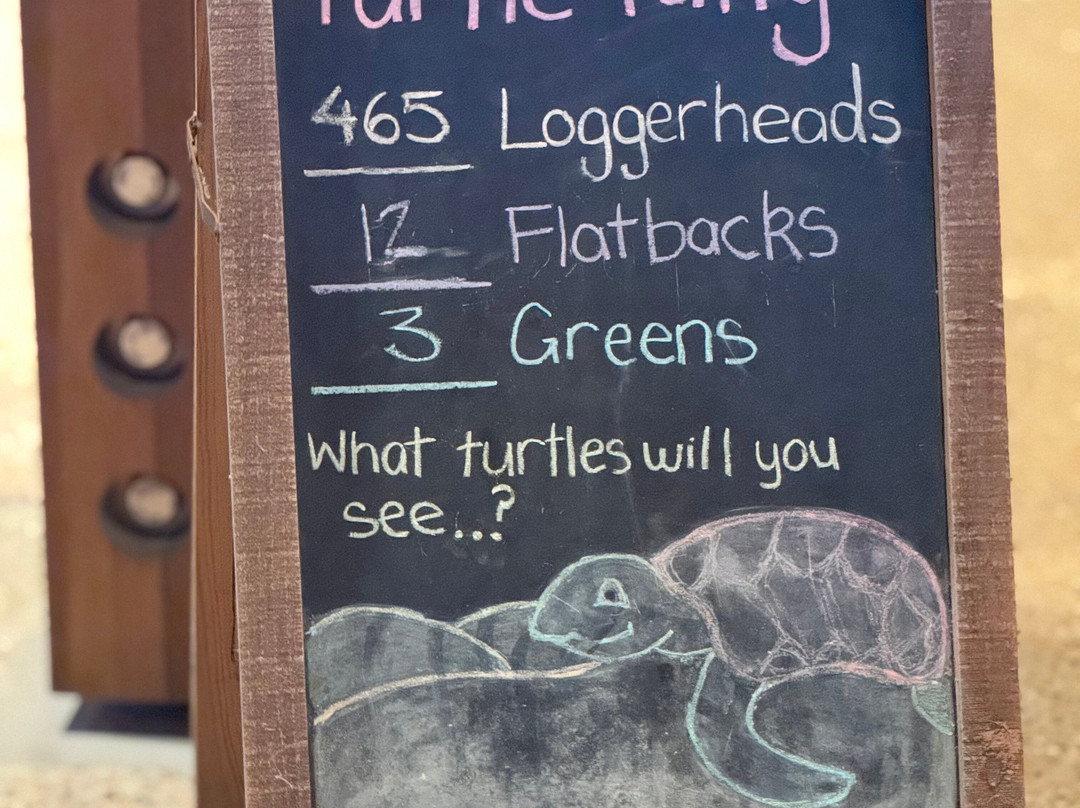 Turtle Tally
465 Loggerheads
12 Flatbacks
3 Greens
What turtles will you
see...?